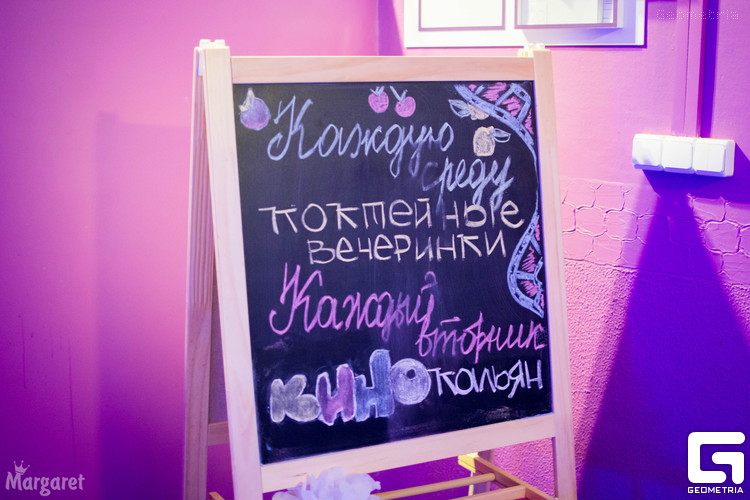 Geometria
Каждую
среду
коктейльные
вечеринки
Каждый
вторник
кино кальян
Margaret
G
GEOMETRIA